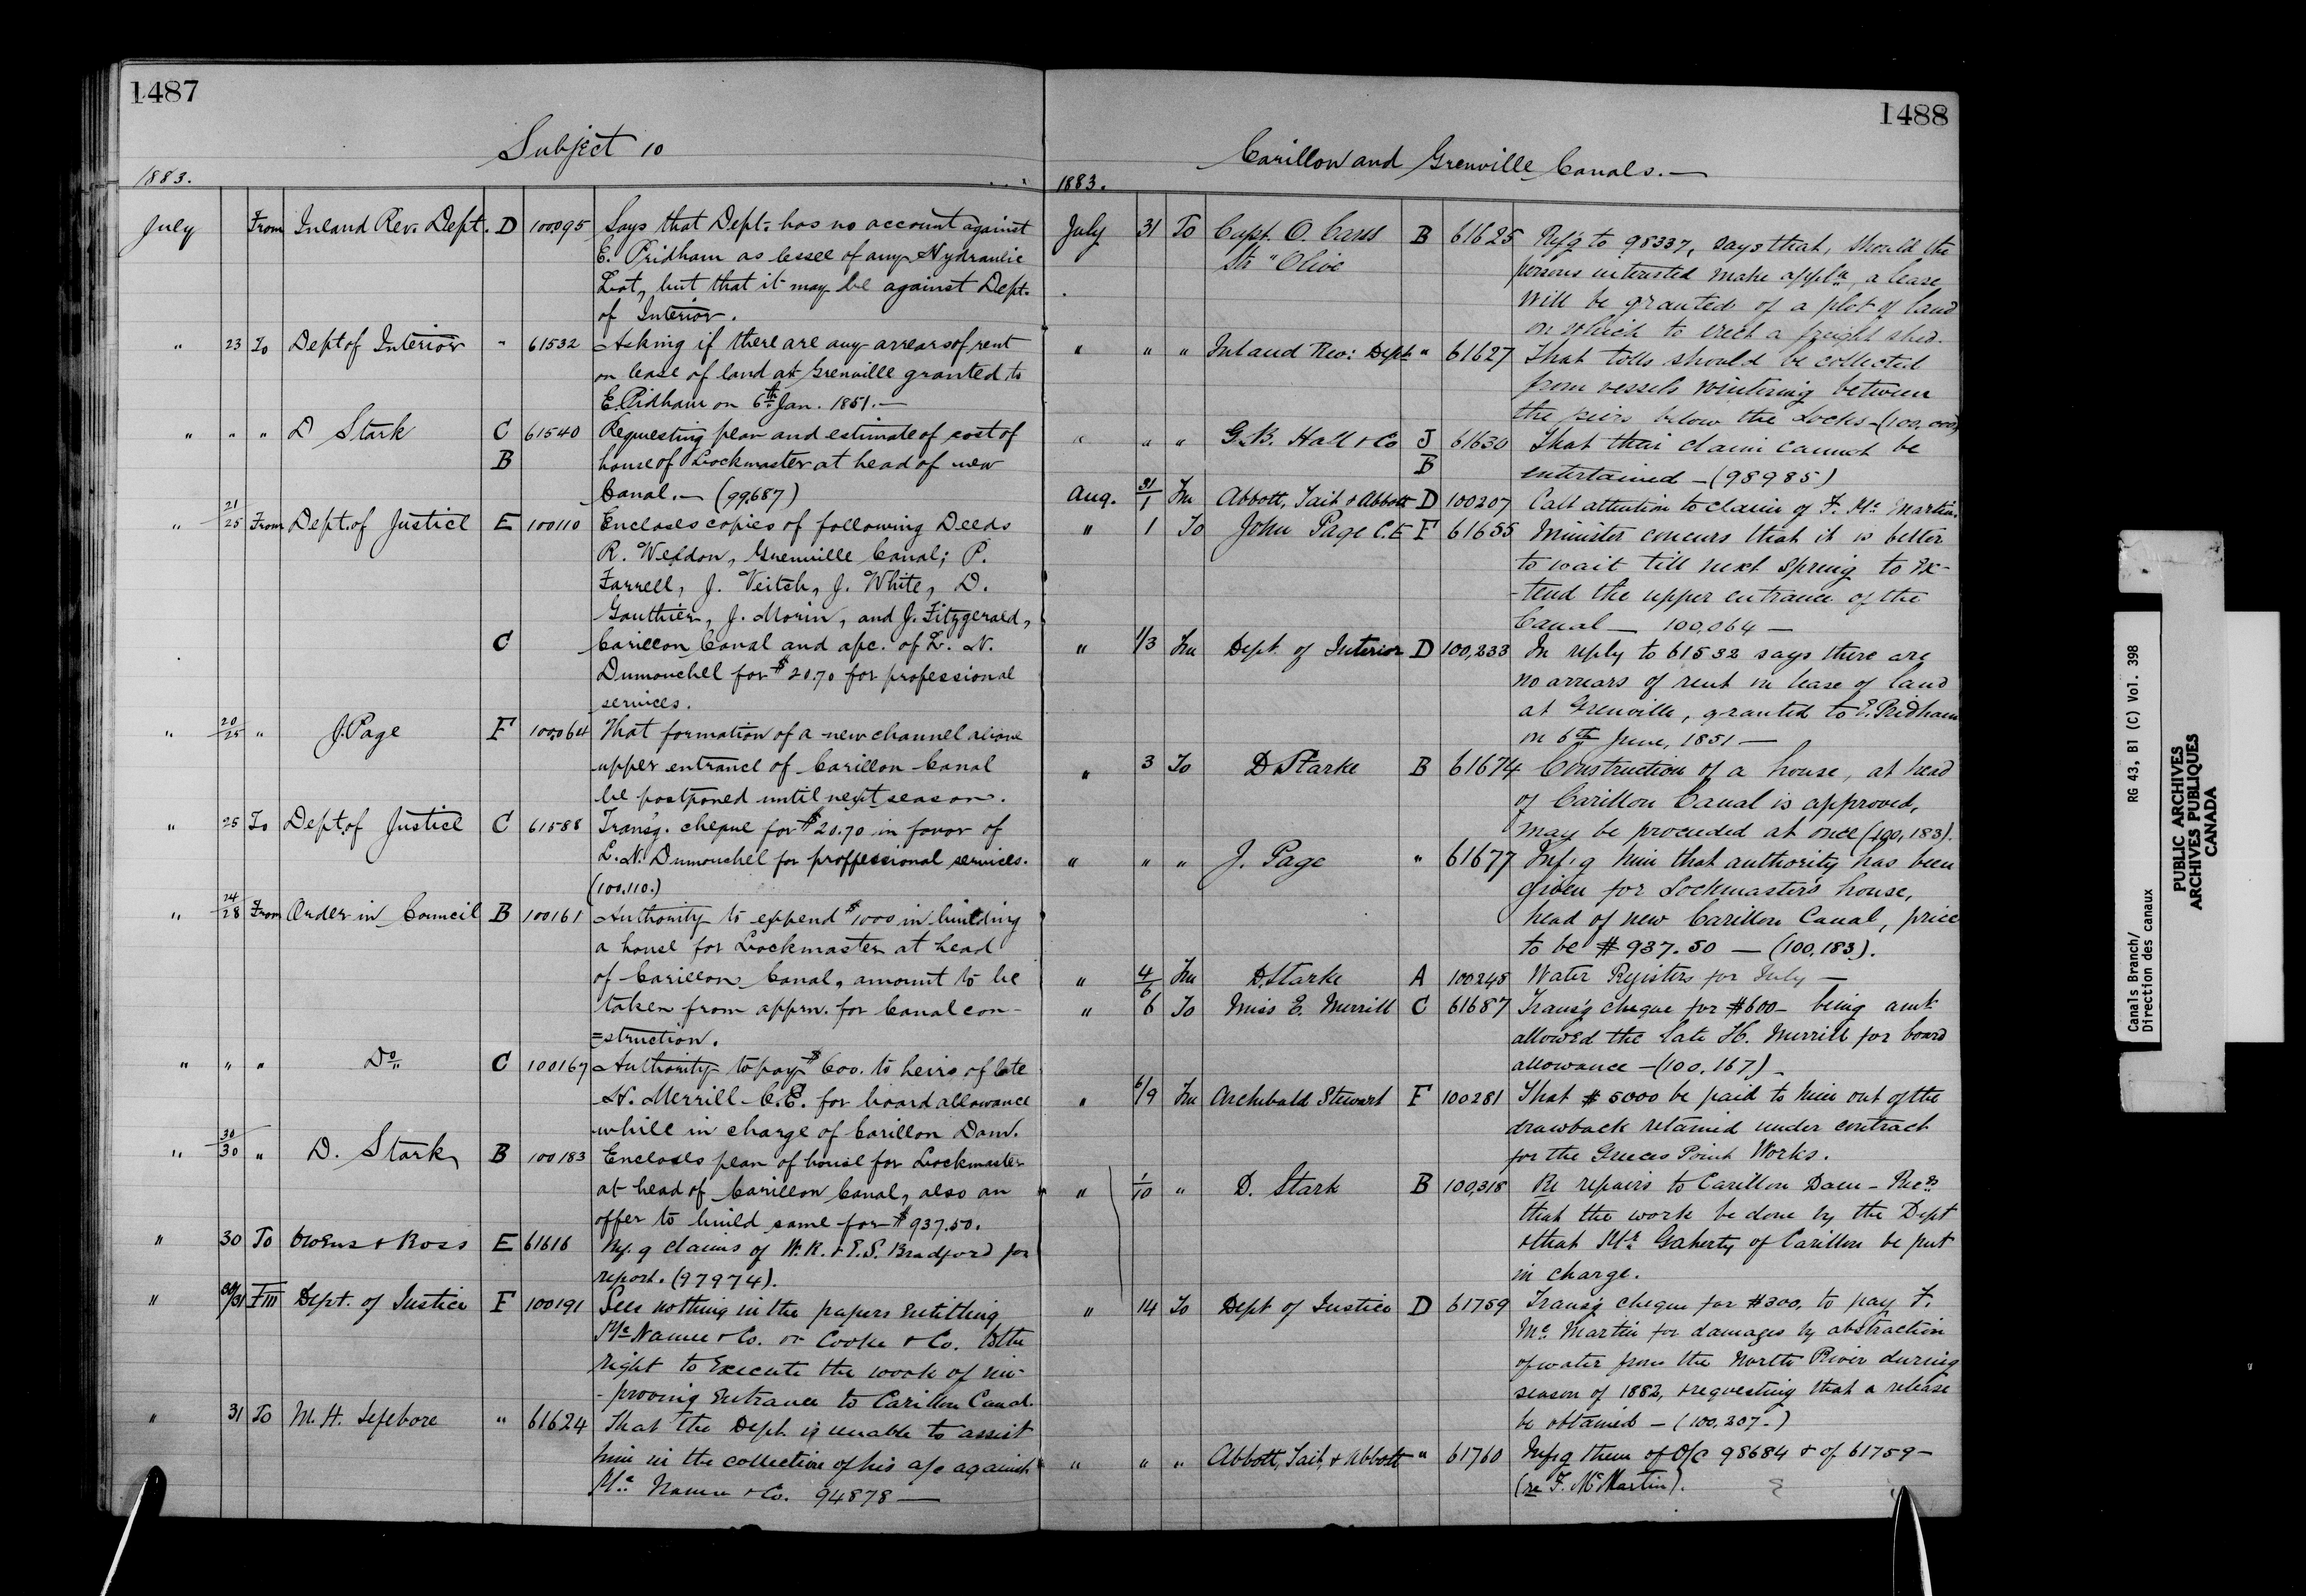 1487
Subject 10
1883.
July From Inland Rev. Dept. D 100095 Says that Dept. has no account against
E. Pridham as lessee of any Hydraulic
Lot, but that it may be against Dept.
of Interior.
" 23 To Dept of Interior " 61532 Asking if there are any arrears of rent
on lease of land at Grenville granted to
E. Pridham on 6th Jan. 1851.—
" " " D Stark C 61540 Requesting plan and estimate of cost of
B house of Lockmaster at head of new
Canal.— (99,687)
" 21/25 From Dept. of Justice E 100110 Encloses copies of following Deeds
R. Weldon, Grenville Canal; P.
Farrell, J. Veitch, J. White, D.
Gauthier, J. Morin, and J. Fitzgerald,
C Carillon Canal and a/c. of L. N.
Dumouchel for $20.70 for professional
services.
" 20/25 " J. Page F 100,064 That formation of a new channel above
upper entrance of Carillon Canal
be postponed until next season.
" 25 To Dept. of Justice C 61588 Trans'g. cheque for $20.70 in favor of
L. N. Dumouchel for proffessional services.
(100,110.)
" 24/28 From Order in Council B 100161 Authority to expend $1000 in building
a house for Lockmaster at head
of Carillon Canal, amount to be
taken from apprn. for Canal con-
=struction.
" " " Do C 100167 Authority to pay $600. to heirs of late
H. Merrill C.E. for board allowance
while in charge of Carillon Dam.
" 30/30 " D. Stark B 100183 Encloses plan of house for Lockmaster
at head of Carillon Canal, also an
offer to build same for $937.50.
" 30 To Owens & Ross E 61616 Ref.g claims of W. R. & E. S. Bradford for
report. (97974).
" 30/31 Fm Dept. of Justice F 100191 Sees nothing in the papers entitling
Mc Namee & Co. or Cooke & Co. to the
right to execute the work of im-
-proving entrance to Carillon Canal.
" 31 To M. H. Lefebvre " 61624 That the Dept. is unable to assist
him in the collection of his a/c against
Mc Namee & Co. 94878 —
1488
Carillon and Grenville Canals.—
1883.
July 31 To Capt. O. Carss B 61625 Ref'g to 98337, says that, should the
Str "Olive persons interested make appln, a lease
will be granted of a plot of land
on which to erect a freight shed.
" " " Inland Rev: Dept " 61627 That tolls should be collected
from vessels wintering between
the piers below the Locks—(100,000)
" " " G. B. Hall & Co J 61630 That their claim cannot be
B entertained — (98985)
Aug. 31/1 Fm Abbott, Tait & Abbott D 100207 Call attention to claim of F. Mc Martin.
" 1 To John Page C.E F 61655 Minister concurs that it is better
to wait till next spring to ex-
-tend the upper entrance of the
Canal — 100,064 —
" 1/3 Fm Dept. of Interior D 100,233 In reply to 61532 says there are
no arrears of rent in lease of land
at Grenville, granted to E. Pridham
on 6th June, 1851 —
" 3 To D. Starke B 61674 Construction of a house, at head
of Carillon Canal is approved,
may be proceeded at once (100,183).
" " " J. Page " 61677 Inf'g him that authority has been
given for Lockmasters house,
head of new Carillon Canal, price
to be $937.50 — (100,183).
" 4/6 Fm D. Starke A 100248 Water Registers for July —
" 6 To Miss E. Merrill C 61687 Trans'g cheque for $600 — being amt
allowed the late H. Merrill for board
allowance — (100,167) —
" 6/9 Fm Archibald Stewart F 100281 That $5000 be paid to him out of the
drawback retained under contract
for the Greeces Point Works.
" 1/10 " D. Stark B 100,318 Re repairs to Carillon Dam — Recs
that the work be done by the Dept
& that Mr. Gaherty of Carillon be put
in charge.
" 14 To Dept of Justice D 61759 Trans'g cheque for $300. to pay F.
Mc Martin for damages by abstraction
of water from the North River during
season of 1882, & requesting that a release
be obtained — (100,207 -)
" " " Abbott, Tait, & Abbott " 61760 Inf'g them of O/C 98684 & of 61759 —
(re F. Mc Martin).
Canals Branch/
Direction des canaux
RG 43, B1 (C) Vol. 398
PUBLIC ARCHIVES
ARCHIVES PUBLIQUES
CANADA